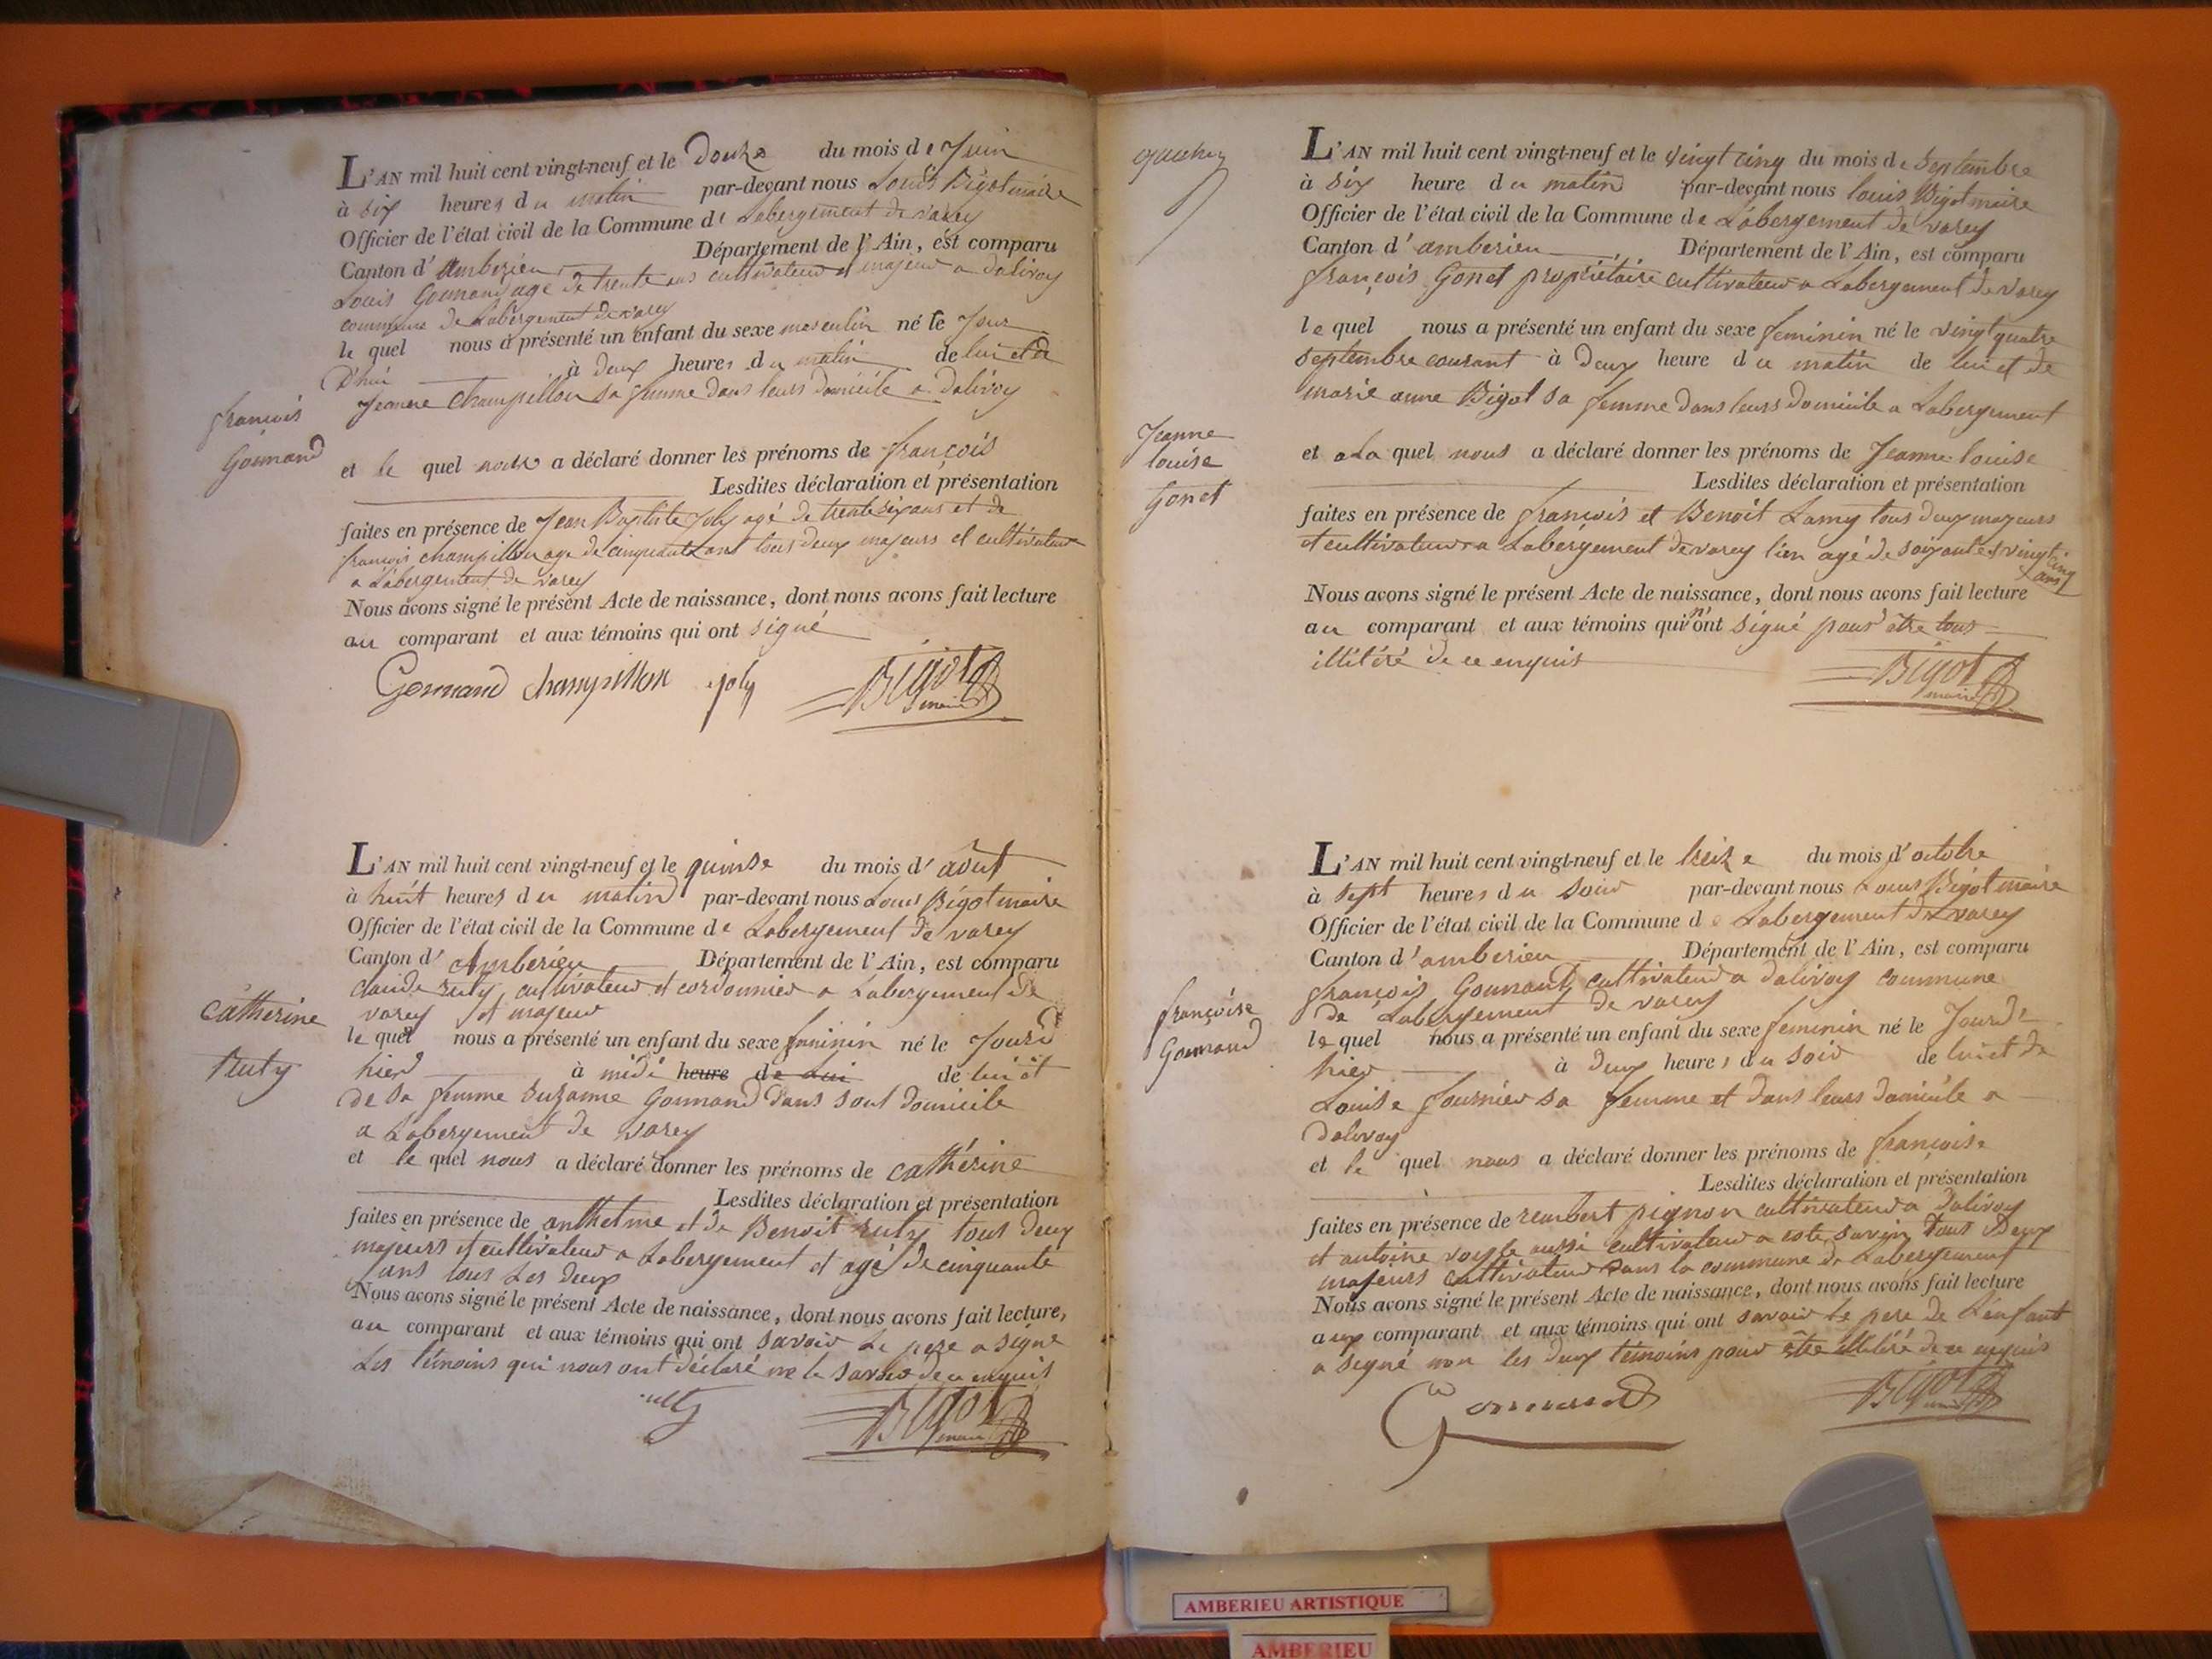 L'AN mil huit cent vingt-neuf et le Douze du mois de Juin
à six heures du matin par-devant nous Louis Bigot maire
Officier de l'état civil de la Commune de Labergement de varey
Canton d'Amberieu Département de l'Ain, est comparu
Louis Gonnand agé de trente ans cultivateur et majeur a dalivoy
commune de Labergement de varey
le quel nous a présenté un enfant du sexe masculin né le Jour
D'hui à deux heures du matin de lui et de
Jeanne Champillon sa femme dans leurs domicile a dalivoy
françois
Gonnand
et le quel nous a déclaré donner les prénoms de françois
Lesdites déclaration et présentation
faites en présence de Jean Baptiste Joly agé de trente six ans et de
françois champillon age de cinquante ans tous deux majeurs et cultivateur
a Labergement de varey
Nous avons signé le présent Acte de naissance, dont nous avons fait lecture
au comparant et aux témoins qui ont signé
Gonnand champillon joly Bigot maire
L'AN mil huit cent vingt-neuf et le quinse du mois d'août
à huit heures du matin par-devant nous Louis Bigot maire
Officier de l'état civil de la Commune de Labergement de varey
Canton d'Amberieu Département de l'Ain, est comparu
claude ruty cultivateur et cordonnier a Labergement de
varey et majeur
le quel nous a présenté un enfant du sexe feminin né le Jour d'
hier à midi heure de Lui de lui et
de sa femme Suzanne Gonnand dans sont domicile
a Labergement de varey
catherine
Ruty
et le quel nous a déclaré donner les prénoms de catherine
Lesdites déclaration et présentation
faites en présence de anthelme et de Benoit ruty tous deux
majeurs et cultivateur a Labergement et agé de cinquante
ans tous les deux
Nous avons signé le présent Acte de naissance, dont nous avons fait lecture,
au comparant et aux témoins qui ont savoir le pere a signe
les témoins qui nous ont déclaré ne le savoir de ce enquis
Bigot maire
L'AN mil huit cent vingt-neuf et le vingt cinq du mois de Septembre
à six heure du matin par-devant nous louis Bigot maire
Officier de l'état civil de la Commune de Labergement de varey
Canton d'amberieu Département de l'Ain, est comparu
françois Gonet propriétaire cultivateur a Labergement de varey
le quel nous a présenté un enfant du sexe feminin né le vingt quatre
septembre courant à deux heure du matin de lui et de
marie anne Bigot sa femme dans leurs domicile a Labergement
Jeanne
louise
Gonet
et a La quel nous a déclaré donner les prénoms de Jeanne louise
Lesdites déclaration et présentation
faites en présence de françois et Benoit Lamy tous deux majeurs
et cultivateur a Labergement de varey l'un agé de soixante et vingt cinq
ans
Nous avons signé le présent Acte de naissance, dont nous avons fait lecture
au comparant et aux témoins qui n'ont signé pour être tous
illitéré de ce enquis
Bigot maire
L'AN mil huit cent vingt-neuf et le treize du mois d'octobre
à sept heures du soir par-devant nous Louis Bigot maire
Officier de l'état civil de la Commune de Labergement de varey
Canton d'amberieu Département de l'Ain, est comparu
françois Gonnand cultivateur a dalivoy commune
de Labergement de varey
le quel nous a présenté un enfant du sexe feminin né le Jour d'
hier à deux heures du soir de lui et de
Louise fournier sa femme et dans leurs domicile a
dalivoy
françoise
Gonnand
et le quel nous a déclaré donner les prénoms de françoise
Lesdites déclaration et présentation
faites en présence de rembert pignon cultivateur a dalivoy
et antoine aussi cultivateur a cote savin tous deux
majeurs cultivateur dans la commune de Labergement
Nous avons signé le présent Acte de naissance, dont nous avons fait lecture
aux comparant et aux témoins qui ont savoir le pere de L'enfant
a signé non les deux témoins pour être illitéré de ce enquis
Gonnand Bigot maire
AMBERIEU ARTISTIQUE
AMBERIEU